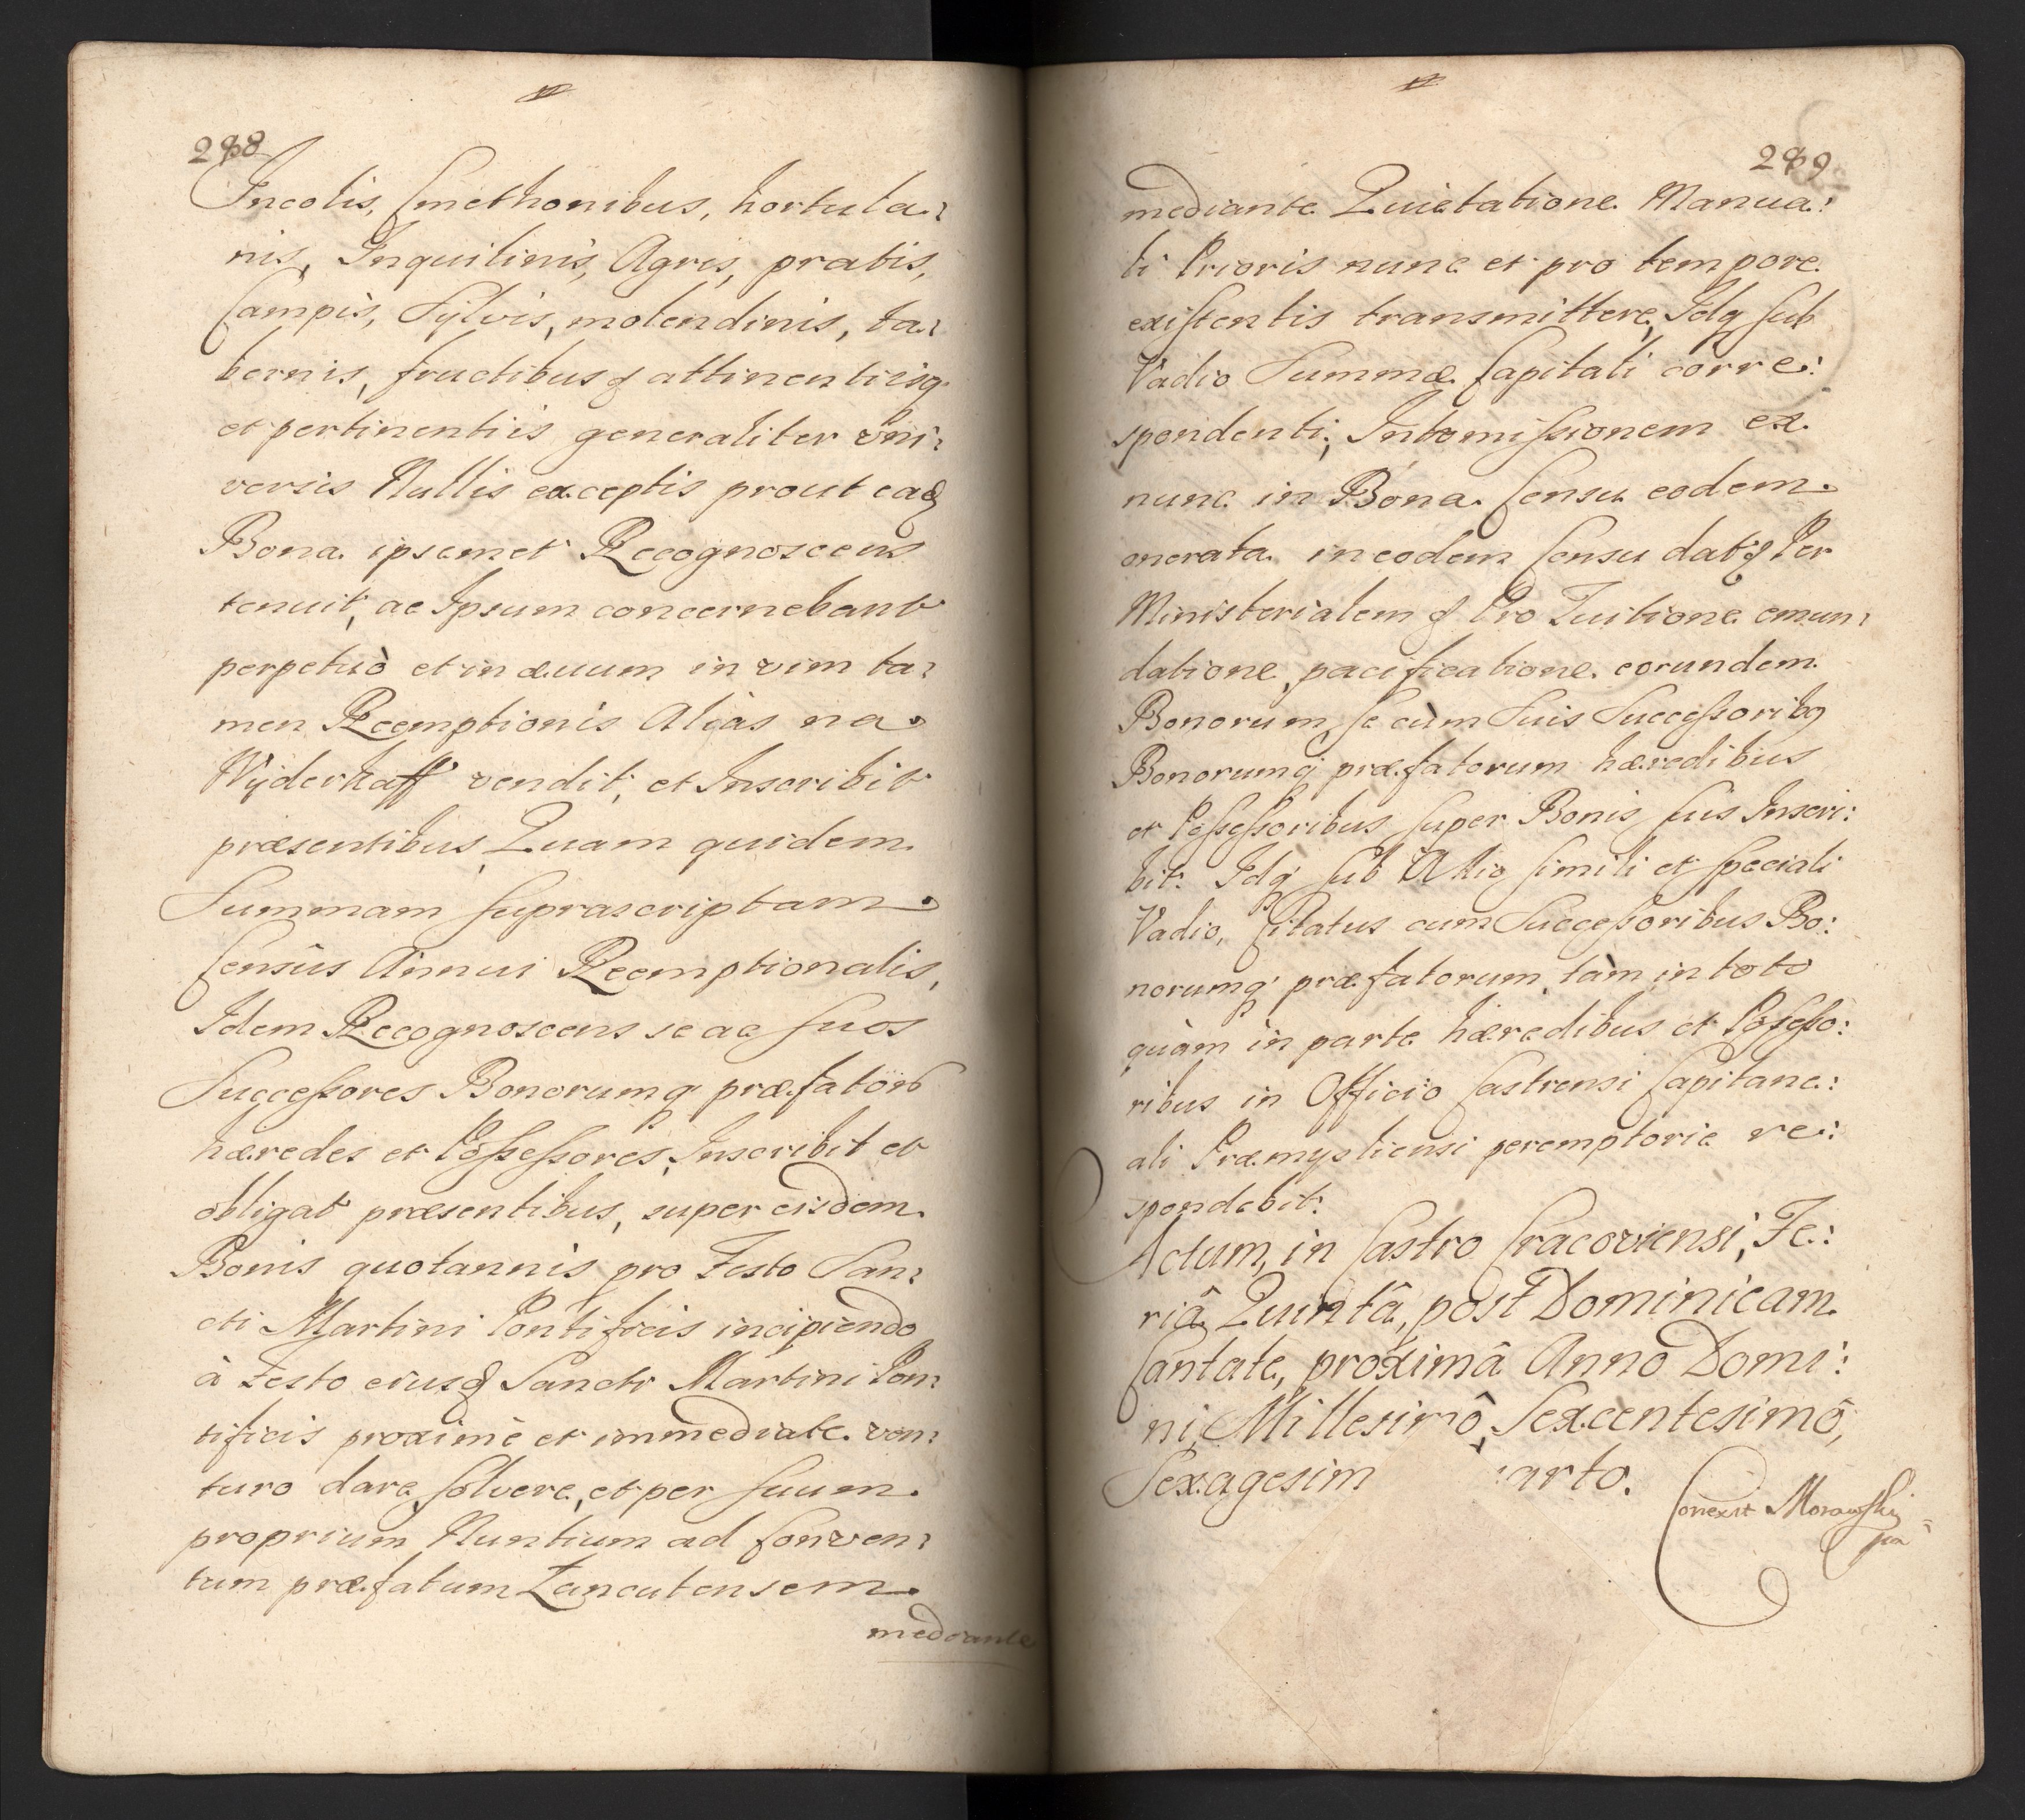 288
Incolis, Cmethonibus, hortula:
nis, Inquilinis, Agris, pratis,
Campis, Sylvis, molendinis, ta:
bernis, fructibusq attinentiisq
et pertinentiis generaliter vni:
versis Nullis exceptis prout eaq
Bona ipsemet Recognoscens
tenuit, ac Ipsum concernebant
perpetuò et in æuum in vim ta:
men Reemptionis Aliàs na
Wÿderkaff vendit, et Inscribit
præsentibus, Quam quidem
Summam suprascriptam
Censûs Annui Reemptionalis,
Idem Recognoscens se ac suos
Successores Bonorumq præfator
hæredes et Possessores, Inscribit et
obligat præsentibus, super eisdem
Bonis quotannis pro Festo San:
cti Martini Pontificis incipiendo
à Festo eiusq Sancti Martini Pon:
tificis proximè et immediate ven:
turo dare, solvere, et per suum
proprium Nuntium ad Conven:
tum præfatum Lancutensem
mediante
289
mediante Quietatione Manua:
li Prioris nunc et pro tempore
existentis transmittere, Idq sub
Vadio Summæ Capitali corre:
spondenti; Intromissionem ex
nunc in Bona Censu eodem
onerata in eodem Censu datq Per
Ministerialem q Pro Tuitione emun:
datione, pacificatione eorundem
Bonorum, se cùm Suis Successoribq
Bonorumq præfatorum hæredibus
et Possessoribus super Bonis suis Inscri:
bit. Idq sub Alio simili et speciali
Vadio, Citatus cum Successoribus Bo:
norumq præfatorum, tàm in toto
quàm in parte hæredibus et Possesso:
ribus in Officio Castrensi Capitane:
ali Præmysliensi peremptorie re:
spondebit.
Actum, in Castro Cracoviensi, Fe:
riâ Quintâ, post Dominicam
Cantate, proximâ Anno Domi:
ni, Millesimô, Sexcentesimô,
Sexagesim arto.
Correxit Morawski